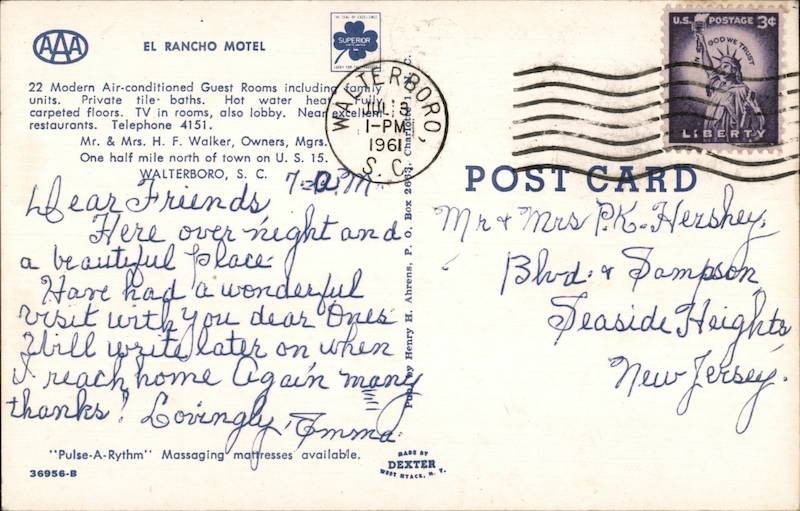 AAA
EL RANCHO MOTEL
SUPERIOR
22 Modern Air-conditioned Guest Rooms including family
units. Private tile baths. Hot water heat. Fully
carpeted floors. TV in rooms, also lobby. Near excellent
restaurants. Telephone 4151.
Mr. & Mrs. H. F. Walker, Owners, Mgrs.
One half mile north of town on U. S. 15.
WALTERBORO, S. C.
7-A.M.
Dear Friends
Here over night and
a beautiful place.
Have had a wonderful
visit with you dear Ones
Will write later on when
I reach home Again many
thanks! Lovingly, Emma.
"Pulse-A-Rythm" Massaging mattresses available.
36956-B
Pub. by Henry H. Ahrens, P. O. Box 2663, Charlotte 1, N. C.
MADE BY
DEXTER
WEST NYACK, N. Y.
WALTERBORO,
JUL 3
1-PM
1961
S. C.
U.S. POSTAGE 3¢
IN GOD WE TRUST
LIBERTY
POST CARD
Mr & Mrs P.K. Hershey.
Blvd. & Sampson
Seaside Heights
New Jersey.